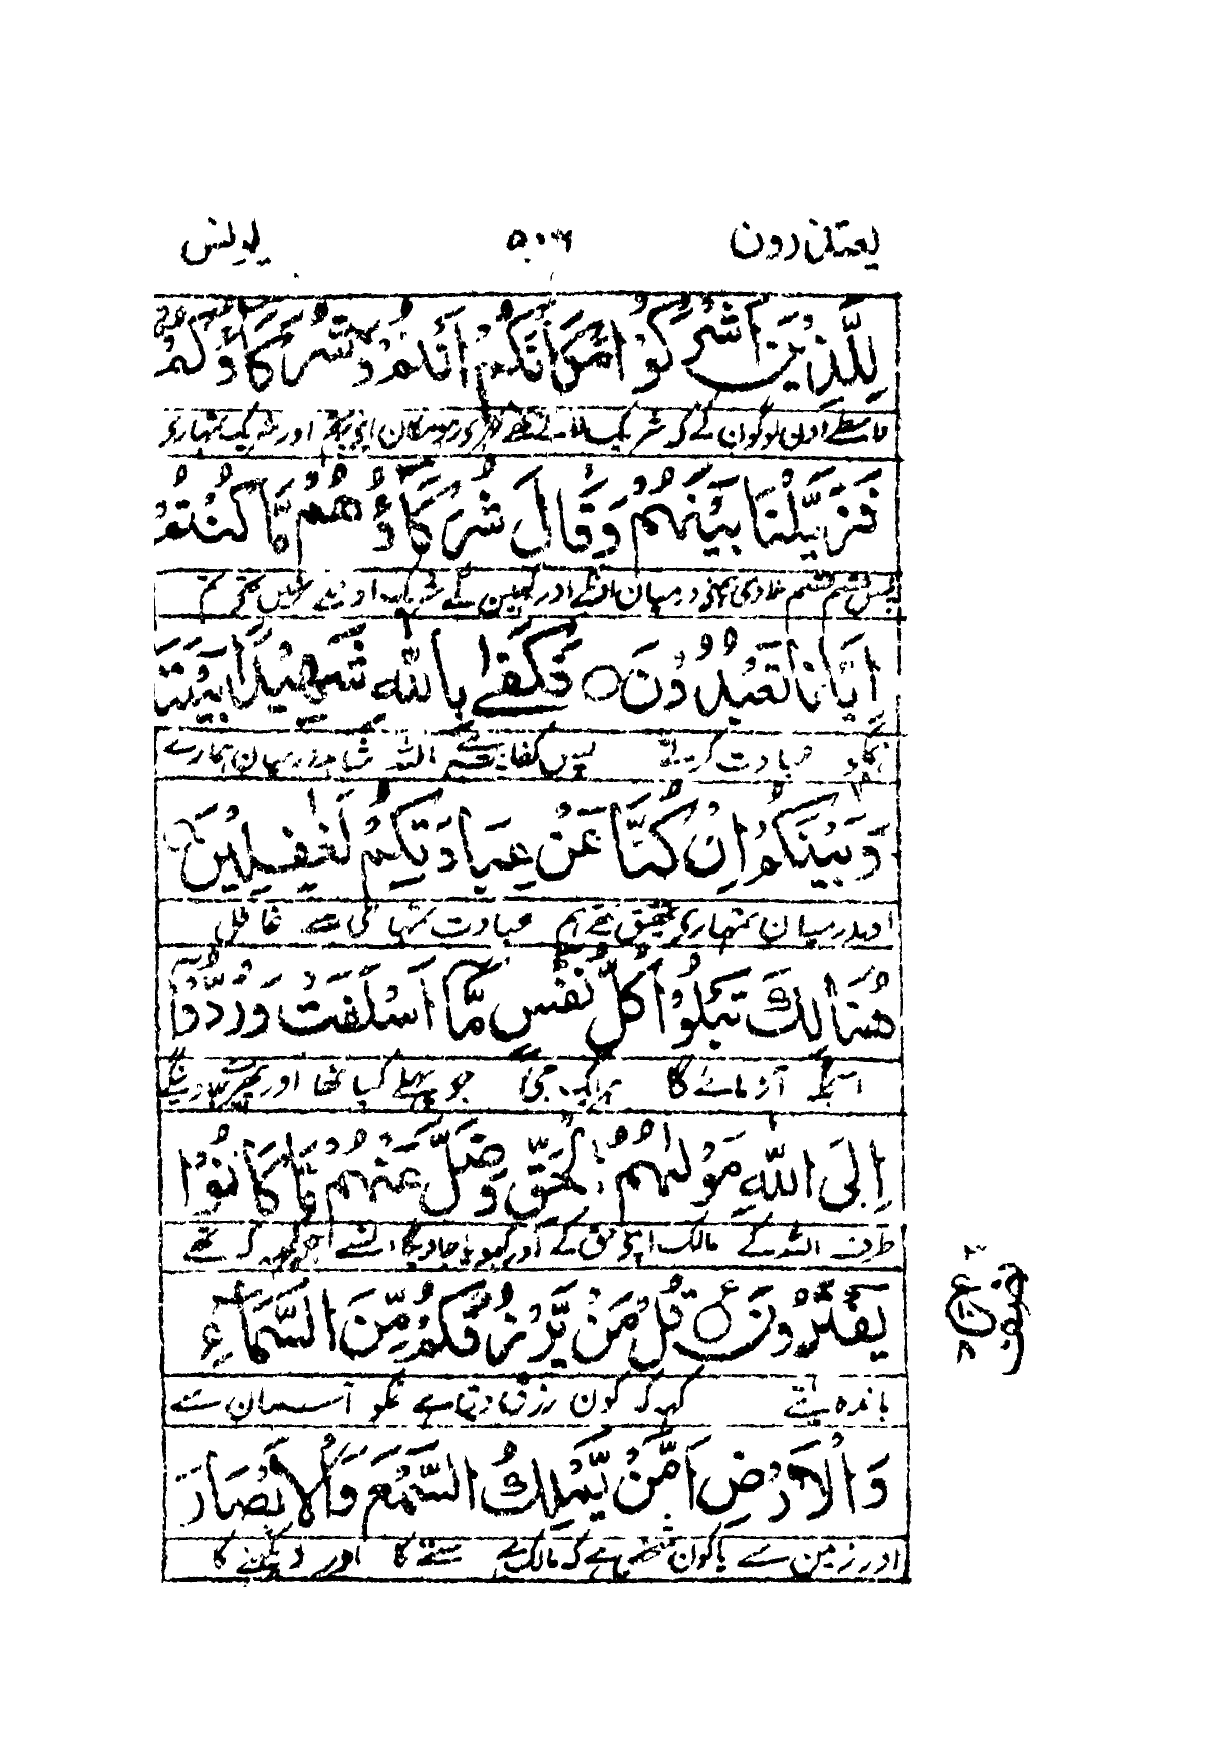 یعتذرون ۵۰۶ یونس
لِلَّذِيْنَ اَشْرَكُوْا مَكَانَكُمْ اَنْتُمْ وَشُرَكَآؤُكُمْ
واسطے اون لوگون کے کہ شریک اور شریک تمہاری
فَزَيَّلْنَا بَيْنَهُمْ وَقَالَ شُرَكَآؤُهُمْ مَّا كُنْتُمْ
درمیان اونکے اور کہین گے شریک اونکے نہیں تھے تم
اِيَّانَا تَعْبُدُوْنَ ○ فَكَفٰى بِاللّٰهِ شَهِيْدًۢا بَيْنَنَا
ہمکو عبادت کرتے پس کفایت ہے اللہ شاہد درمیان ہمارے
وَبَيْنَكُمْ اِنْ كُنَّا عَنْ عِبَادَتِكُمْ لَغٰفِلِيْنَ ○
اور درمیان تمہاری تحقیق تھے ہم عبادت تمہاری سے غافل
هُنَالِكَ تَبْلُوْا كُلُّ نَفْسٍ مَّآ اَسْلَفَتْ وَرُدُّوْٓا
اسجگہ آزمائے گا ہر ایک جی جو پہلے کیا تھا اور پھیرے جاوینگے
اِلَى اللّٰهِ مَوْلٰىهُمُ الْحَقِّ وَضَلَّ عَنْهُمْ مَّا كَانُوْا
طرف اللہ کے مالک اپنے حق کے اور کھویا جاویگا انسے جو کچھ کہ تھے
يَفْتَرُوْنَ ○ قُلْ مَنْ يَّرْزُقُكُمْ مِّنَ السَّمَآءِ
باندہ لیتے کہہ کہ کون رزق دیتا ہے تمکو آسمان سے
وَالْاَرْضِ اَمَّنْ يَّمْلِكُ السَّمْعَ وَالْاَبْصَارَ
اور زمین سے یا کون شخص ہے کہ مالک ہے سننے کا اور دیکھنے کا